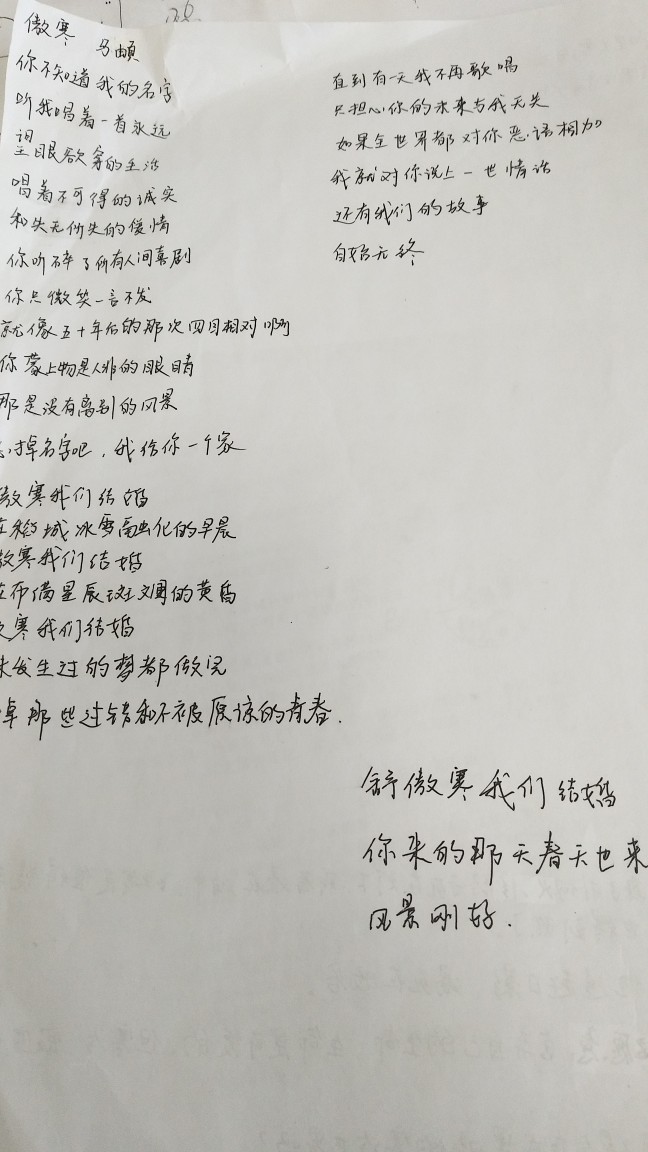 傲寒 马頔
你不知道我的名字
听我唱着一首永远
望眼欲穿的生活
唱着不可得的诚实
和失无所失的爱情
你听碎了所有人间喜剧
你只微笑一言不发
就像五十年后的那次四目相对啊
你蒙上物是人非的眼睛
那是没有离别的风景
忘掉名字吧，我给你一个家
傲寒我们结婚
在稻城冰雪融化的早晨
傲寒我们结婚
在布满星辰斑斓的黄昏
傲寒我们结婚
未发生过的梦都做完
掉那些过错和不被原谅的青春.
直到有一天我不再歌唱
只担心你的未来与我无关
如果全世界都对你恶语相加
我就对你说上一世情话
还有我们的故事
自始无终
舒傲寒我们结婚
你来的那天春天也来
风景刚好.